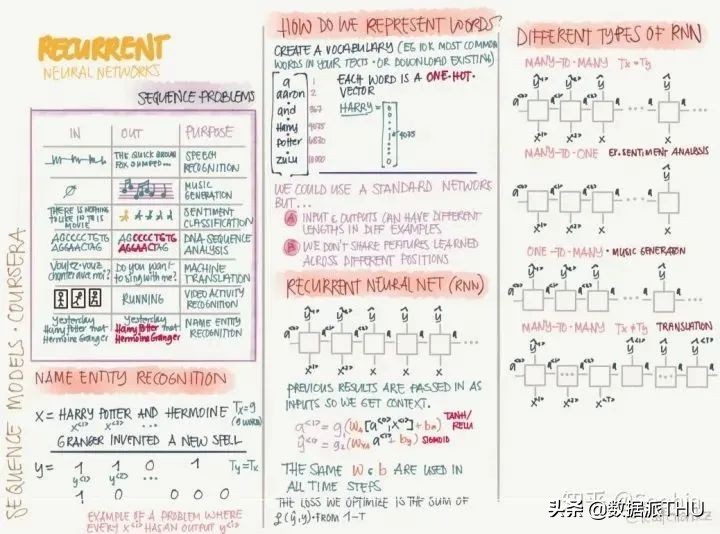 RECURRENT
NEURAL NETWORKS
SEQUENCE PROBLEMS
IN OUT PURPOSE
THE QUICK BROWN FOX JUMPED.... SPEECH RECOGNITION
∅ MUSIC GENERATION
THERE IS NOTHING TO LIKE IN THIS MOVIE SENTIMENT CLASSIFICATION
AGCCCCTGTG AGGAACTAG AGCCCCTGTG AGGAACTAG DNA-SEQUENCE ANALYSIS
Voulez-vous chanter avec moi? Do you want to sing with me? MACHINE TRANSLATION
RUNNING VIDEO ACTIVITY RECOGNITION
Yesterday Harry Potter met Hermoine Granger Yesterday Harry Potter met Hermoine Granger NAME ENTITY RECOGNITION
SEQUENCE MODELS · COURSERA
NAME ENTITY RECOGNITION
X = HARRY POTTER AND HERMOINE Tx=9
x<1> x<2> ... x<3> (9 WORDS)
GRANGER INVENTED A NEW SPELL
y = 1 1 0 1 Ty=Tx
y<1> y<2>
1 0 0 0 0
EXAMPLE OF A PROBLEM WHERE
EVERY X<i> HAS AN OUTPUT y<i>
HOW DO WE REPRESENT WORDS?
CREATE A VOCABULARY (EG 10K MOST COMMON
WORDS IN YOUR TEXTS · OR DOWNLOAD EXISTING)
a 1
aaron 2
and 367
Harry 4075
potter 6830
zulu 10000
EACH WORD IS A ONE-HOT-
VECTOR
HARRY =
4075
WE COULD USE A STANDARD NETWORK
BUT...
A INPUT & OUTPUTS CAN HAVE DIFFERENT
LENGTHS IN DIFF EXAMPLES
B WE DON'T SHARE FEATURES LEARNED
ACROSS DIFFERENT POSITIONS
RECURRENT NEURAL NET (RNN)
PREVIOUS RESULTS ARE PASSED IN AS
INPUTS SO WE GET CONTEXT.
a<1> = g(Wa[a<0>,x<1>]+ba) TANH/RELU
ŷ<1> = g2(Wya a<1>+by) SIGMOID
THE SAME W & b ARE USED IN
ALL TIME STEPS
THE LOSS WE OPTIMIZE IS THE SUM OF
L(ŷ,y) · FROM 1-T
DIFFERENT TYPES OF RNN
MANY-TO-MANY Tx=Ty
MANY-TO-ONE EX. SENTIMENT ANALYSIS
ONE-TO-MANY · MUSIC GENERATION
MANY-TO-MANY Tx≠Ty TRANSLATION
头条 @数据派THU